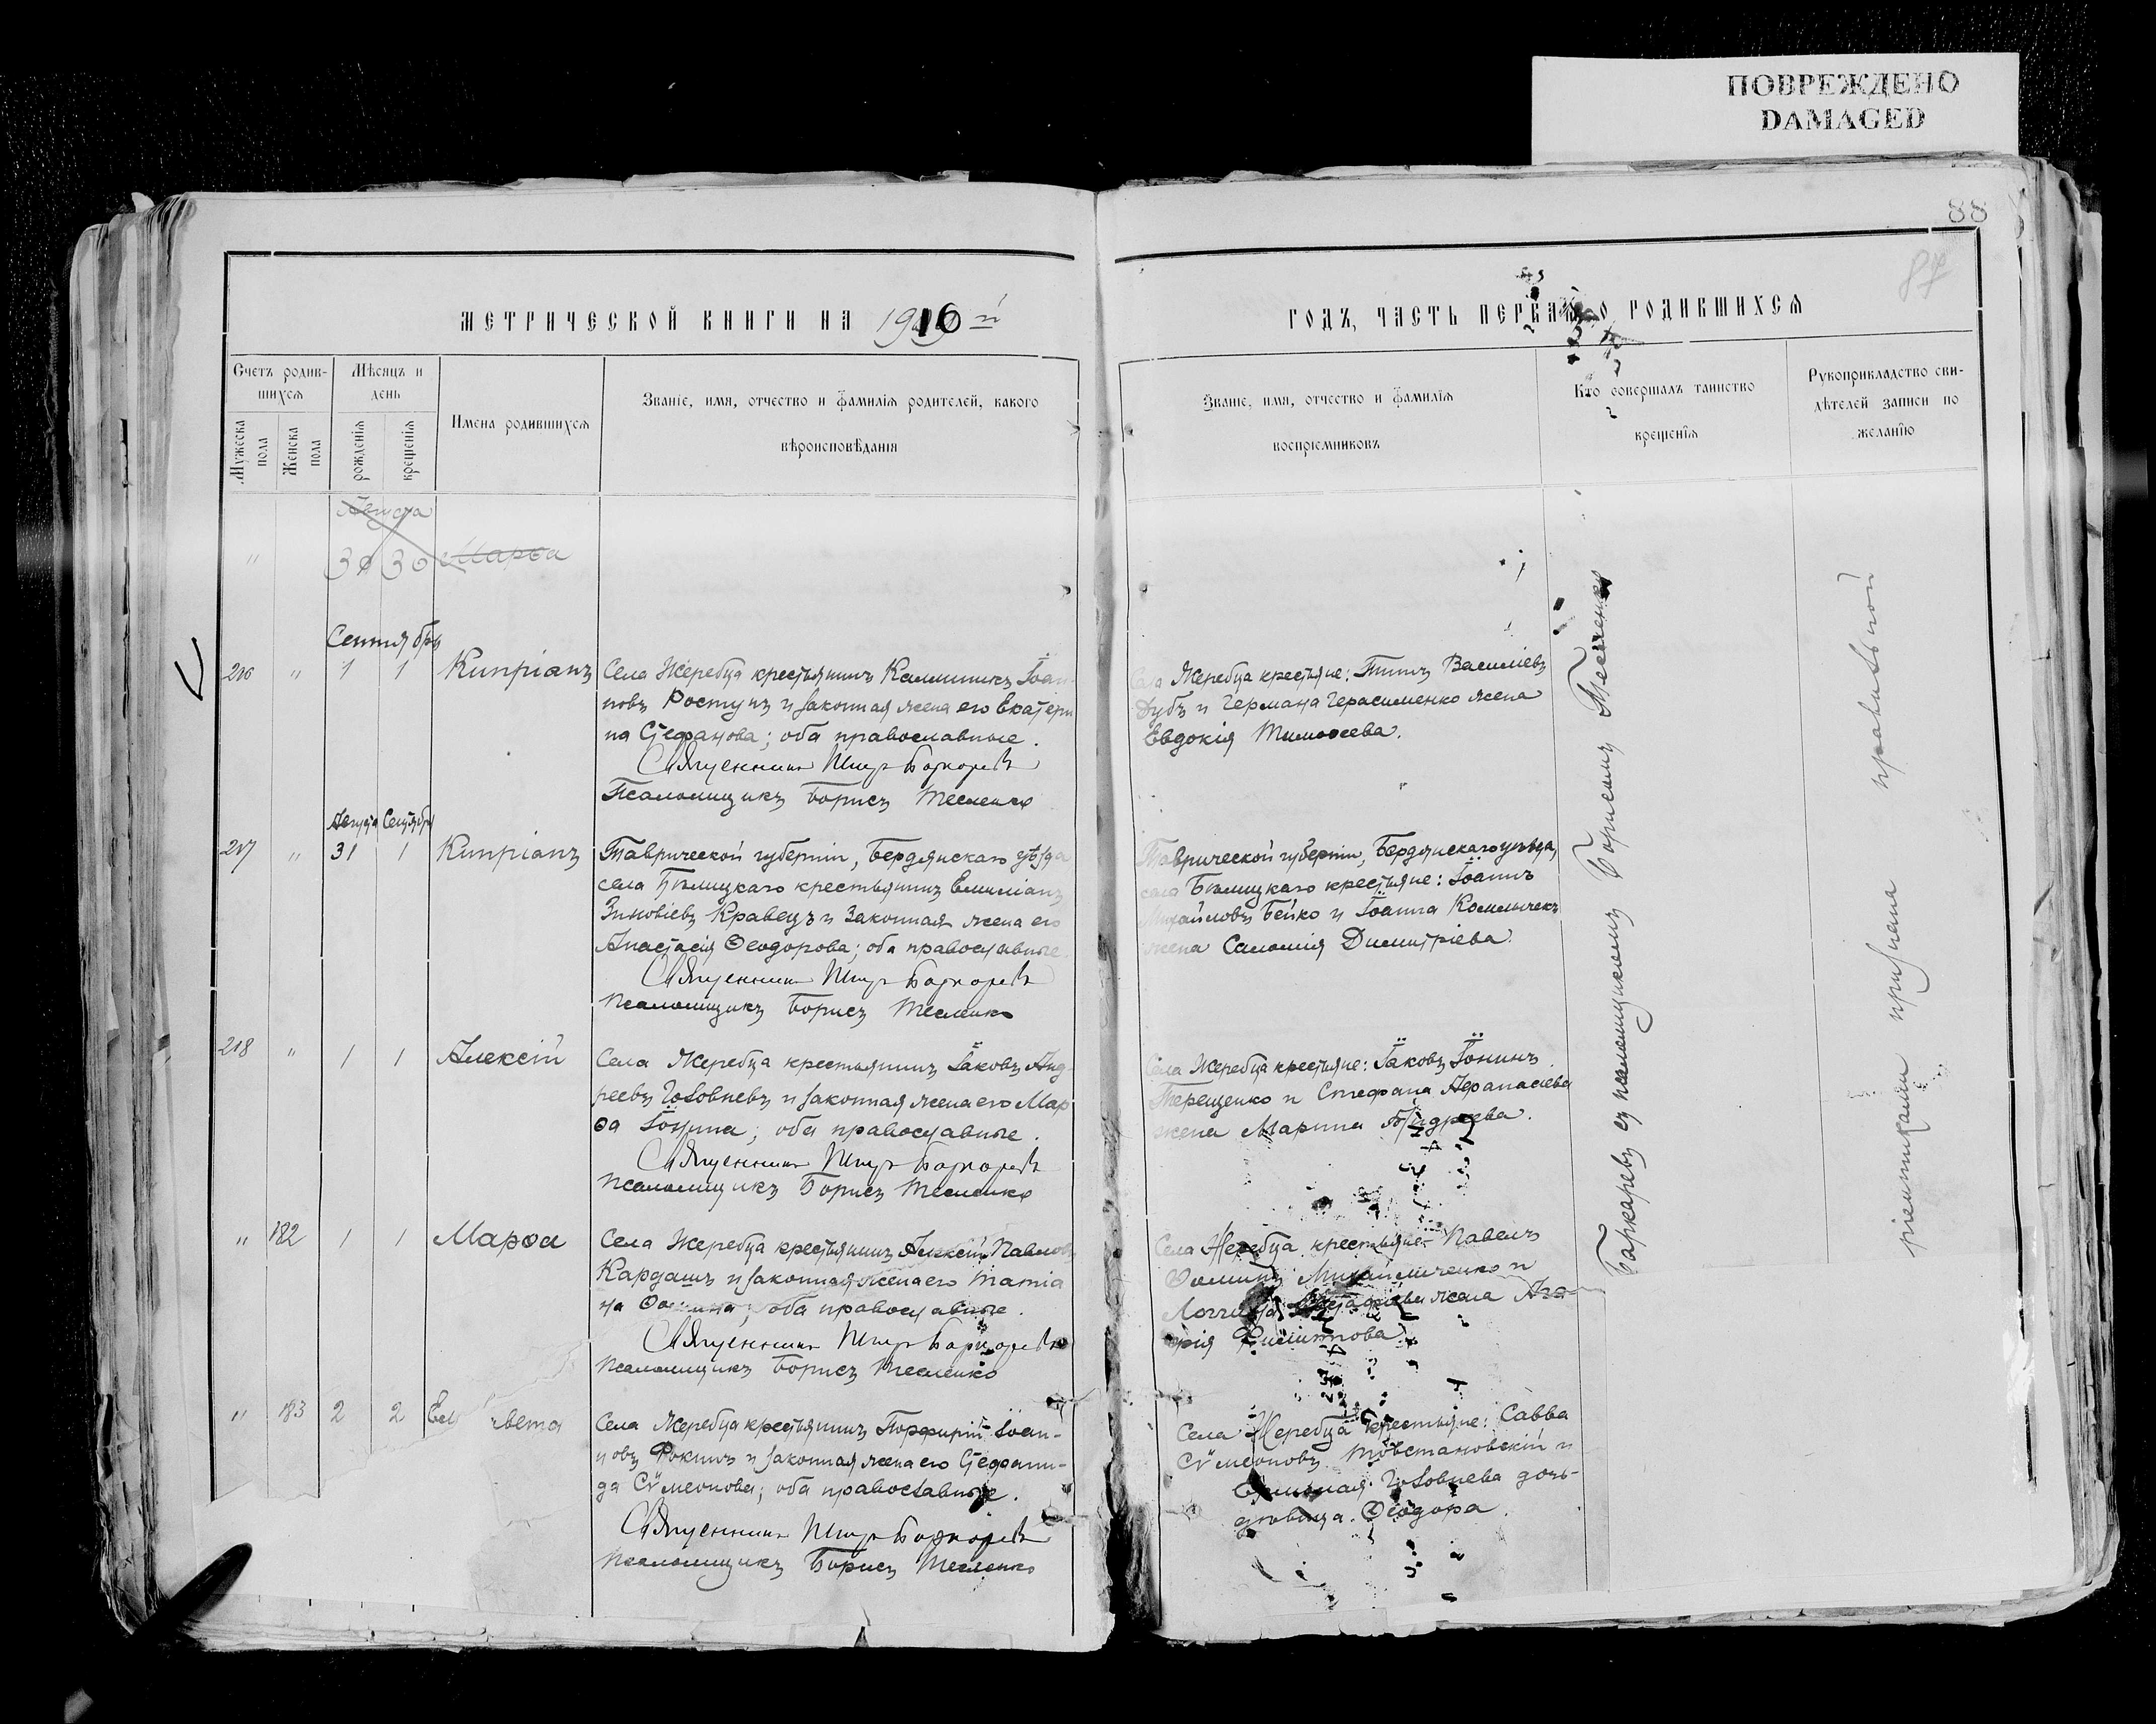 ПОВРЕЖДЕНО
DAMAGED
88
87
МЕТРИЧЕСКОЙ КНИГИ НА 1916 й
ГОДЪ, ЧАСТЬ ПЕРВАЯ, О РОДИВШИХСЯ
Счетъ родив-
шихся
Мужеска пола
Женска пола
Мѣсяцъ и
день
рожденія
крещенія
Имена родившихся
Званіе, имя, отчество и фамилія родителей, какого
вѣроисповѣданія
Званіе, имя, отчество и фамилія
воспріемниковъ
Кто совершалъ таинство
крещенія
Рукоприкладство сви-
дѣтелей записи по
желанію
Августа
" 30 30 Марѳа
Сентябрь
216 " 1 1 Кипріанъ
Села Жеребца крестьянинъ Каллиникъ Іоан-
новъ Ростунъ и законная жена его Екатери
на Стефанова; оба православные.
Священникъ
Псаломщикъ Борисъ Тесленко
Села Жеребца крестьяне: Титъ Василіевъ
Дубъ и Германа Герасименко жена
Евдокія Тимоѳеева.
Августа Сентябрь
217 " 31 1 Кипріанъ
Таврической губерніи, Бердянскаго уѣзда
села Бѣлицкаго крестьянинъ Емиліанъ
Зиновіевъ Кравецъ и законная жена его
Анастасія Ѳеодорова; оба православные.
Священникъ
Псаломщикъ Борисъ Тесленко
Таврической губерніи, Бердянскаго уѣзда,
села Бѣлицкаго крестьяне: Іоаннъ
Михайловъ Бейко и Іоанна
жена Саломія Димитріева.
218 " 1 1 Алексій
Села Жеребца крестьянинъ Іаковъ Анд-
реевъ Головневъ и законная жена его Мар
ѳа Іонина; оба православные.
Священникъ
Псаломщикъ Борисъ Тесленко
Села Жеребца крестьяне: Іаковъ Іонинъ
Терещенко и Стефана Аѳанасіева
жена Марина
" 182 1 1 Марѳа
Села Жеребца крестьянинъ Алексій Павловъ
Кардашъ и законная жена его Татіа
на; оба православные.
Священникъ
Псаломщикъ Борисъ Тесленко
Села Жеребца крестьяне Павелъ
Ѳоминъ Михайличенко и
жена Ага-
ѳія Филиппова
" 183 2 2 Ели вета
Села Жеребца крестьянинъ Порфирій Іоан-
новъ Фокинъ и законная жена его Стефани-
да Сѵмеонова; оба православные.
Священникъ
Псаломщикъ Борисъ Тесленко
Села Жеребца крестьяне: Савва
Сѵмеоновъ Товстановскій и
Головнева дочь-
дѣвица Ѳеодора.
Баркаревъ съ псаломщикомъ Борисомъ Тесленко
ріемниками признана правильной